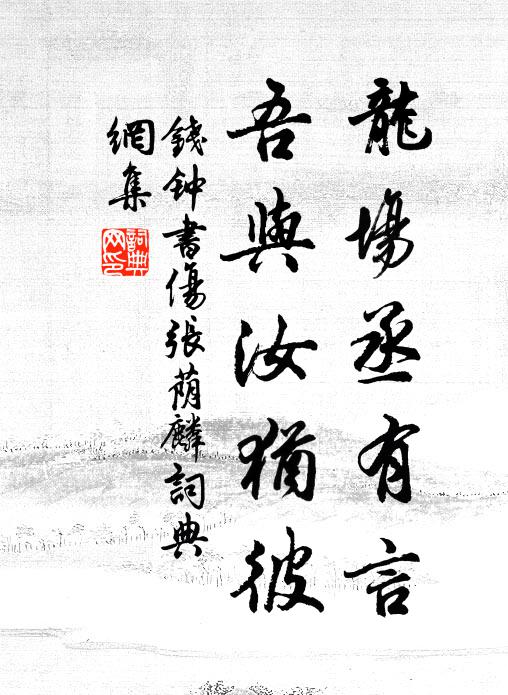 龍場丞有言
吾與汝猶彼
錢钟書傷張荫麟詞典
網集
詞典
网印